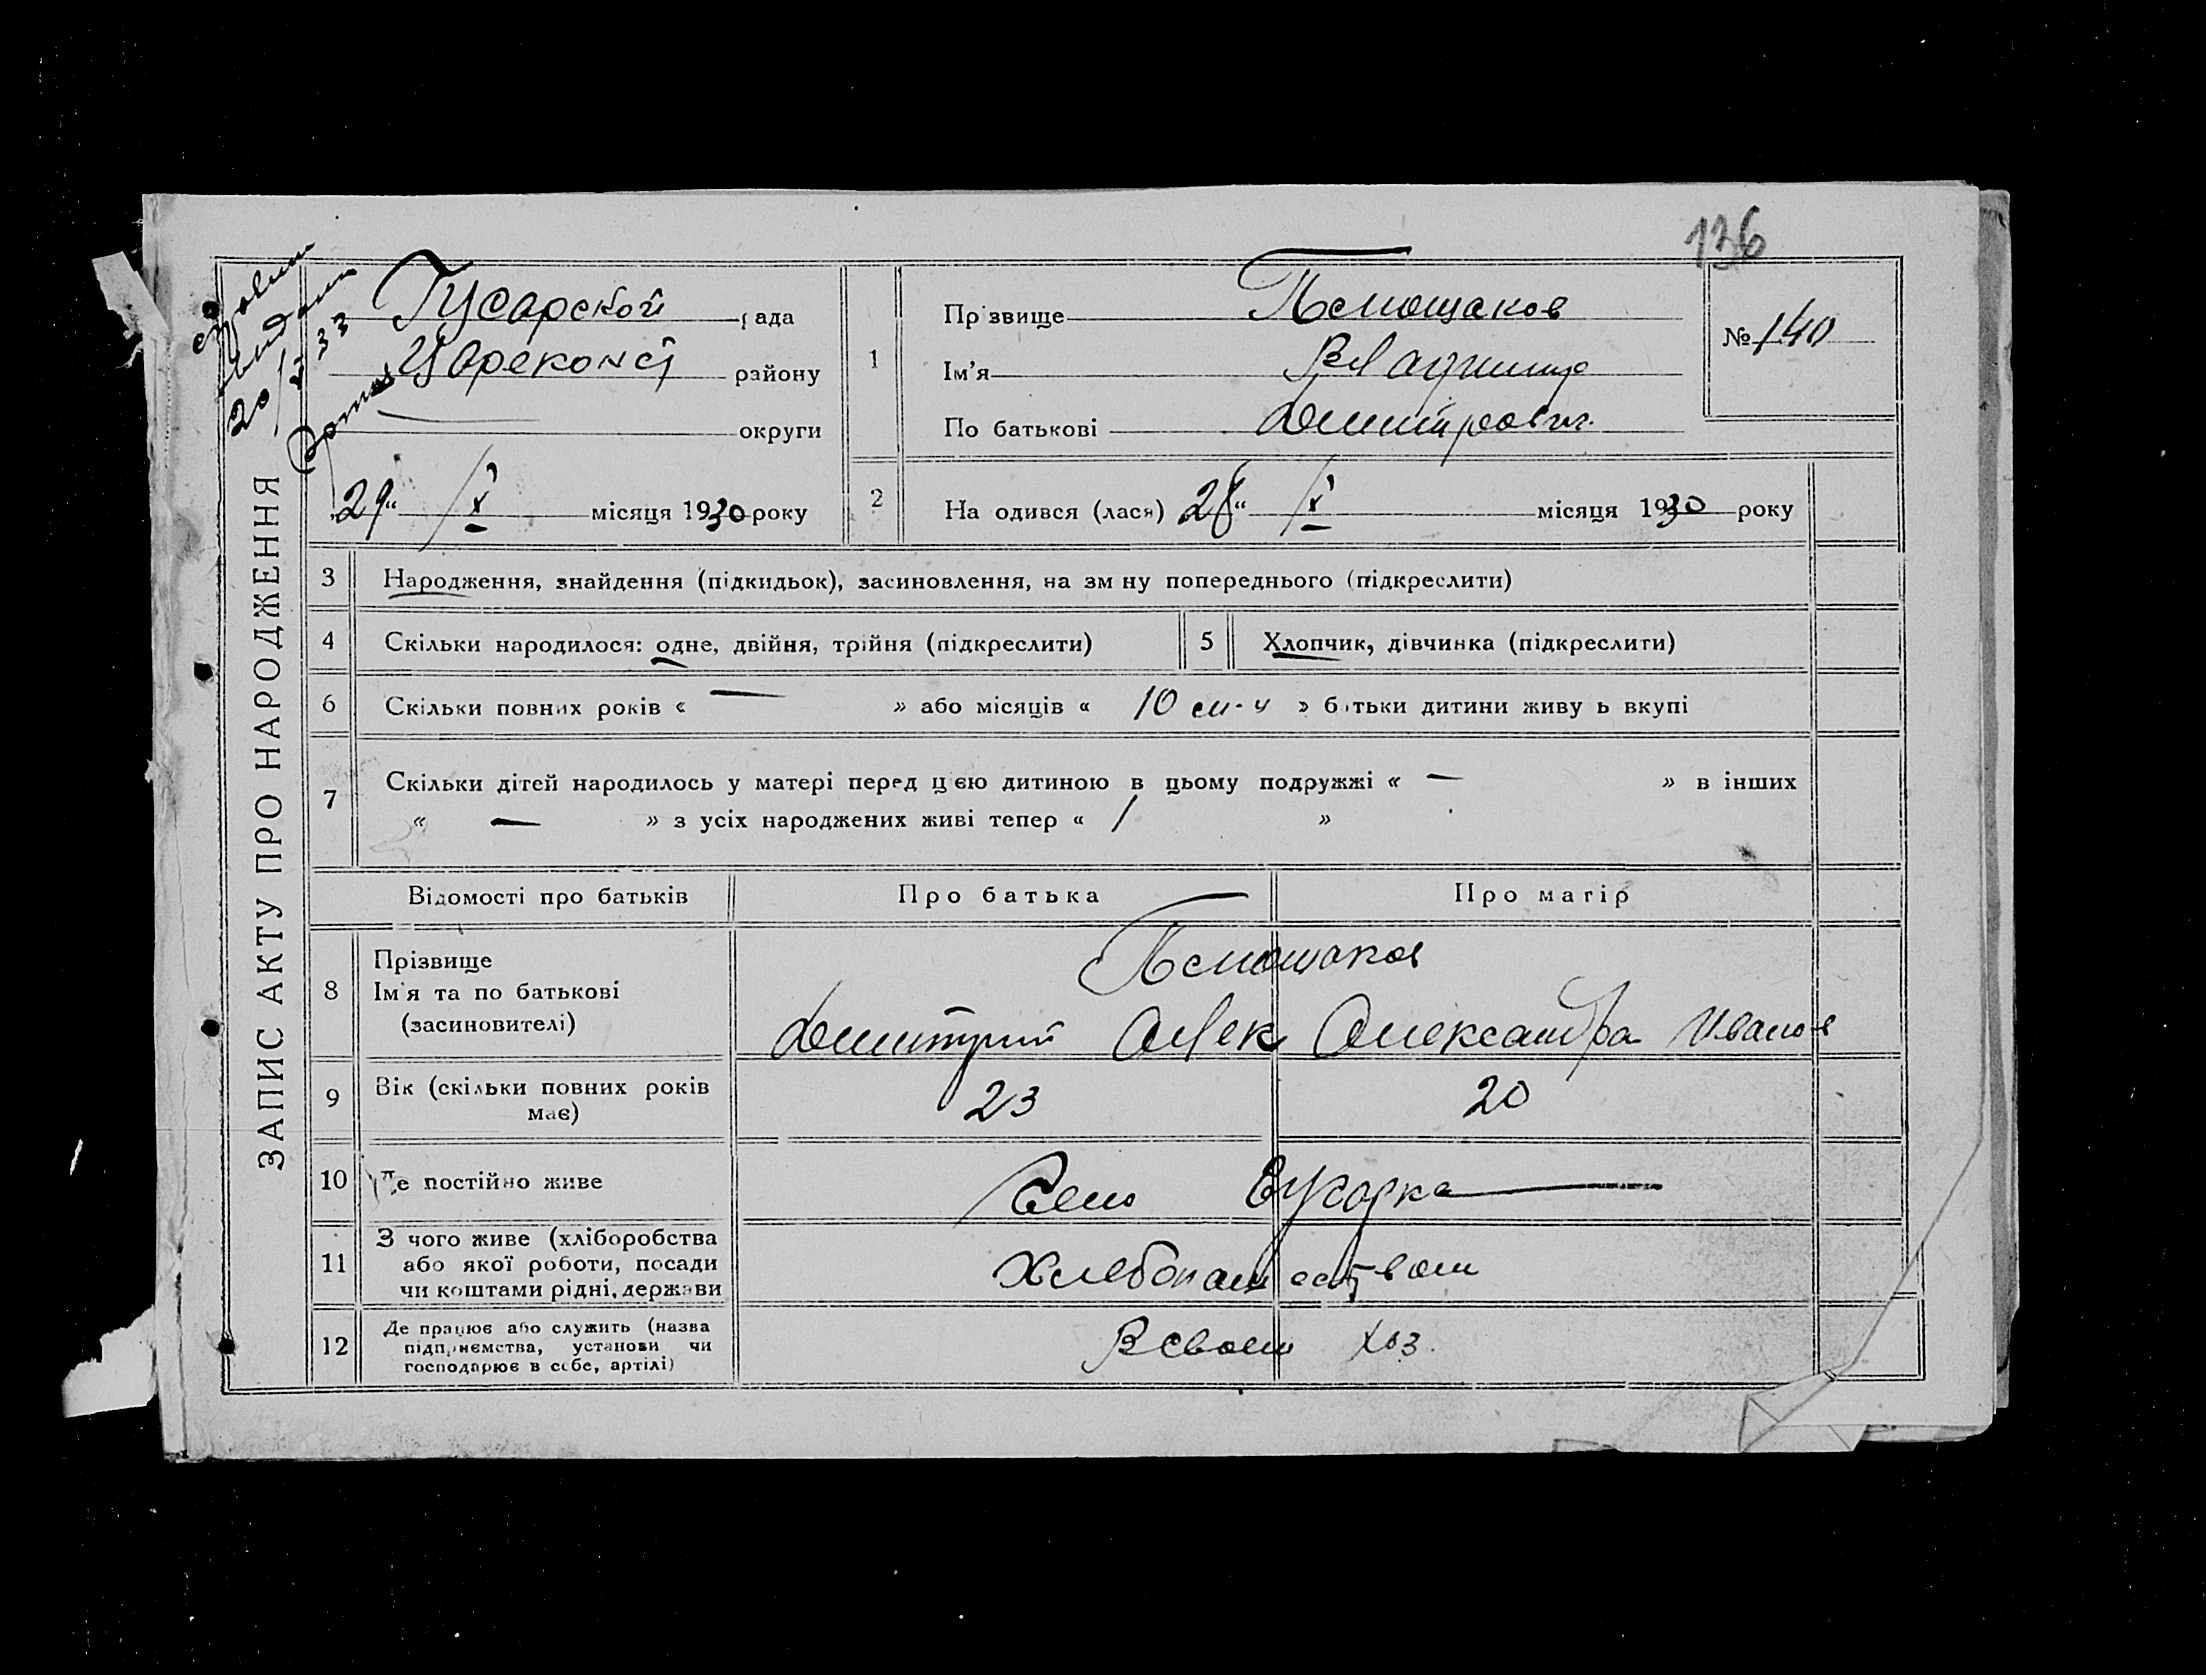 136
Гусарской рада
району
округи
"29" IX місяця 1930 року
ЗАПИС АКТУ ПРО НАРОДЖЕННЯ
20/ 33
1
Прізвище
Ім'я Владимир
По батькові Дмитрович
№ 140
2
На одився (лася) 28" IX місяця 1930 року
3 Народження, знайдення (підкидьок), засиновлення, на зм ну попереднього (підкреслити)
4 Скільки народилося: одне, двійня, трійня (підкреслити)
5 Хлопчик, дівчинка (підкреслити)
6 Скільки повних років « — » або місяців « 10 м-ц » батьки дитини живу ь вкупі
7 Скільки дітей народилось у матері перед цією дитиною в цьому подружжі « — » в інших
« — » з усіх народжених живі тепер « 1 »
Відомості про батьків
Про батька
Про матір
8 Прізвище
Ім'я та по батькові
(засиновителі)
Дмитрий Алек
Александра Иванов
9 Вік (скільки повних років
має)
23
20
10 Де постійно живе
Село Гусарка
11 З чого живе (хліборобства
або якої роботи, посади
чи коштами рідні, держави
Хлебопашеством
12 Де працює або служить (назва
підприємства, установи чи
господарює в себе, артілі)
В своем хоз.